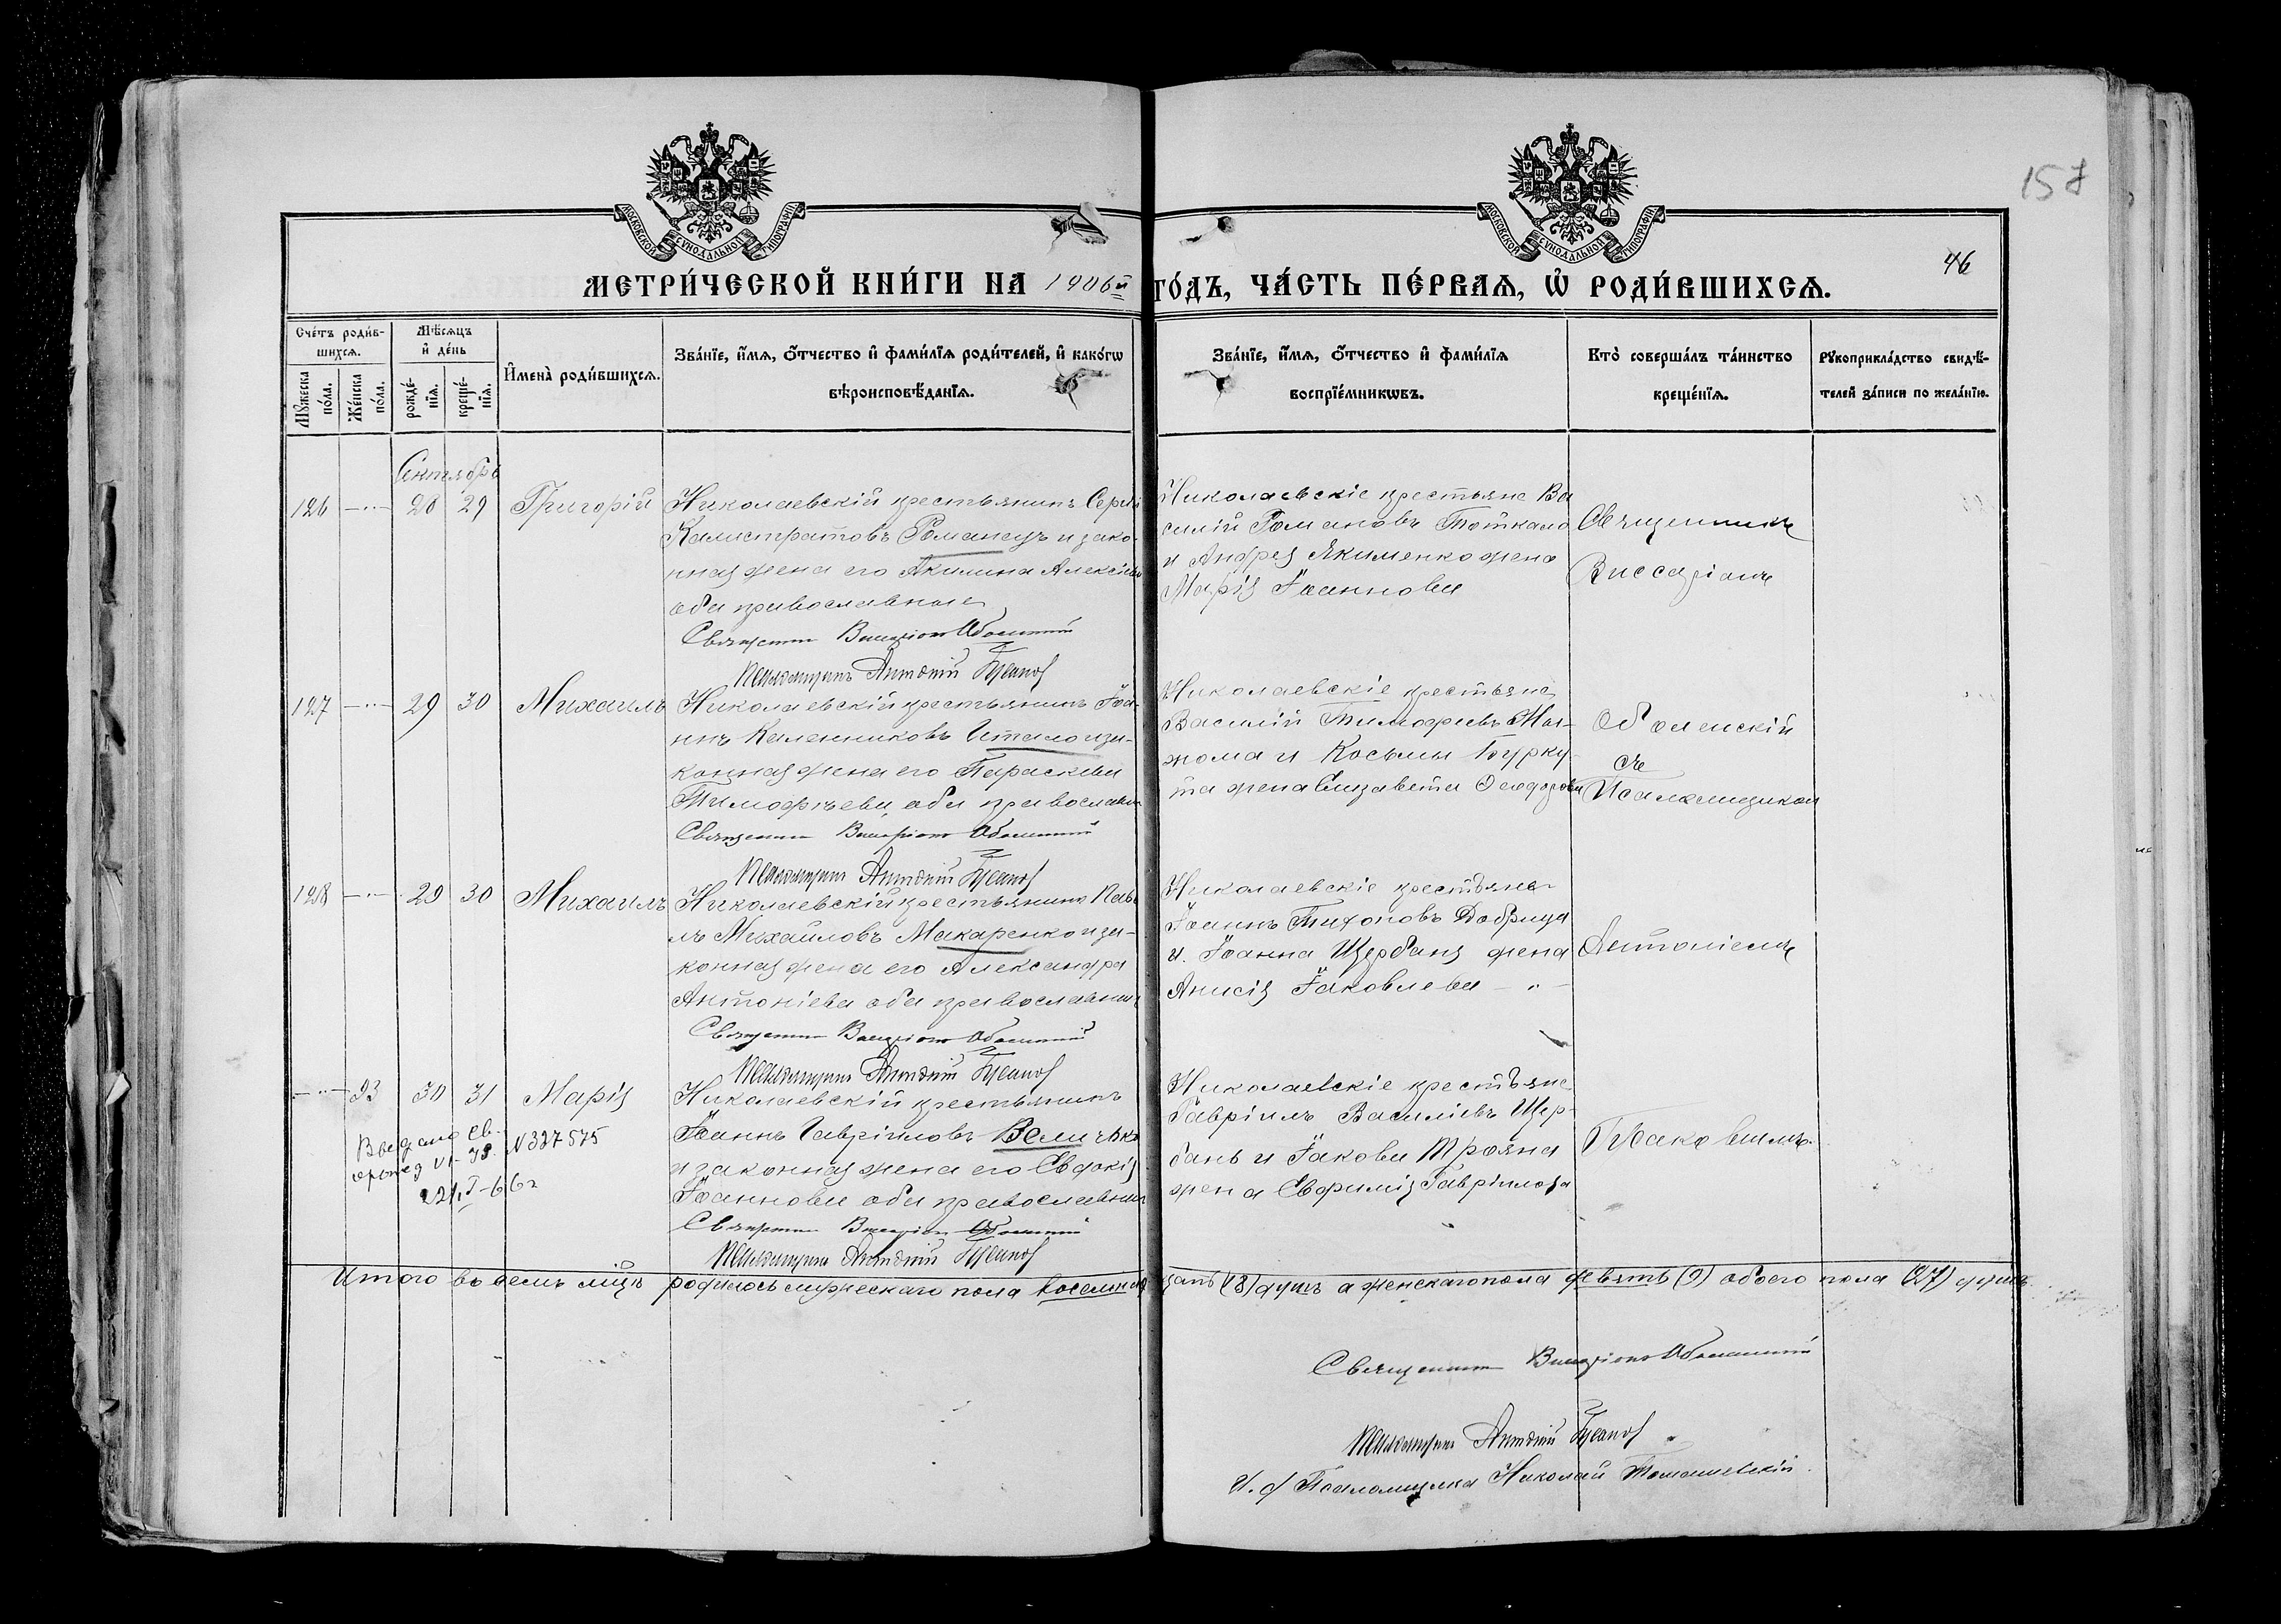 157
46
МОСКОВСКОЙ СѴНОДАЛЬНОЙ ТИПОГРАФІИ
МОСКОВСКОЙ СѴНОДАЛЬНОЙ ТИПОГРАФІИ
МЕТРИ́ЧЕСКОЙ КНИ́ГИ НА 1906й ГО́ДЪ, ЧА́СТЬ ПЕ́РВАЯ, Ѡ҆ РОДИ́ВШИХСЯ.
Сче́тъ роди́в-
шихся.
Мѣ́сяцъ
и҆ де́нь
Мꙋ́жеска
по́ла.
Же́нска
по́ла.
рожде́-
нїя.
креще́-
нїя.
И҆мена̀ роди́вшихся.
Зва́нїе, и҆́мя, ѻ҆́тчество и҆ фами́лїя роди́телей, и҆ како́гѡ
вѣроисповѣ́данїя.
Зва́нїе, и҆́мя, ѻ҆́тчество и҆ фами́лїя
воспрїе́мникѡвъ.
Кто̀ соверша́лъ та́инство
креще́нїя.
Рꙋкоприкла́дство свидѣ́-
телей за́писи по жела́нїю.
126 28 29 Григорій
Николаевскій крестьянинъ Сергій
Калистратовъ Романецъ и зако-
нная жена его Акилина Алексіева
оба православные
Священник Виссаріон Оболенский
Псаломщикъ Антоний
Николаевскіе крестьяне Ва
силій Романовъ
и Андрея Якименко жена
Марія Іоаннова
Священникъ
Виссаріонъ
127 29 30 Михаилъ
Николаевскій крестьянинъ Іоа-
ннъ
конная жена его Параскева
Тимофѣева, оба православные
Священник Виссаріон Оболенский
Псаломщикъ Антоний
Николаевскіе крестьяне
Василій Тимофеевъ
и Косьмы
та жена Елизавета Феодорова
Оболенскій
съ
Псаломщиком
128 29 30 Михаилъ
Николаевскій крестьянинъ Паве
лъ Михайловъ Макаренко и за-
конная жена его Александра
Антоніева оба православные
Священник Виссаріон Оболенский
Псаломщикъ Антоний
Николаевскіе крестьяне
Іоаннъ Тихоновъ Добрица
и Іоанна Щербаня жена
Анисія Іаковлева
Антоніемъ
93 30 31 Марія
Николаевскій крестьянинъ
Іоаннъ Гавріиловъ Величко
и законная жена его Евдокія
Іоаннова оба православные
Священник Виссаріон Оболенский
Псаломщикъ Антоний
Николаевскіе крестьяне
Гавріилъ Василіевъ Щер-
бань и Іакова Трояна
жена Евфимія Гавріилова
N 327575
21/I-66г
Итого въ семъ мцѣ родилось мужескаго пола восемнадцать (18) душъ а женскаго пола девять (9) обоего пола (27) душъ
Священник Виссаріон Оболенский
Псаломщикъ Антоний
И. д Псаломщика Николай Томашевскій